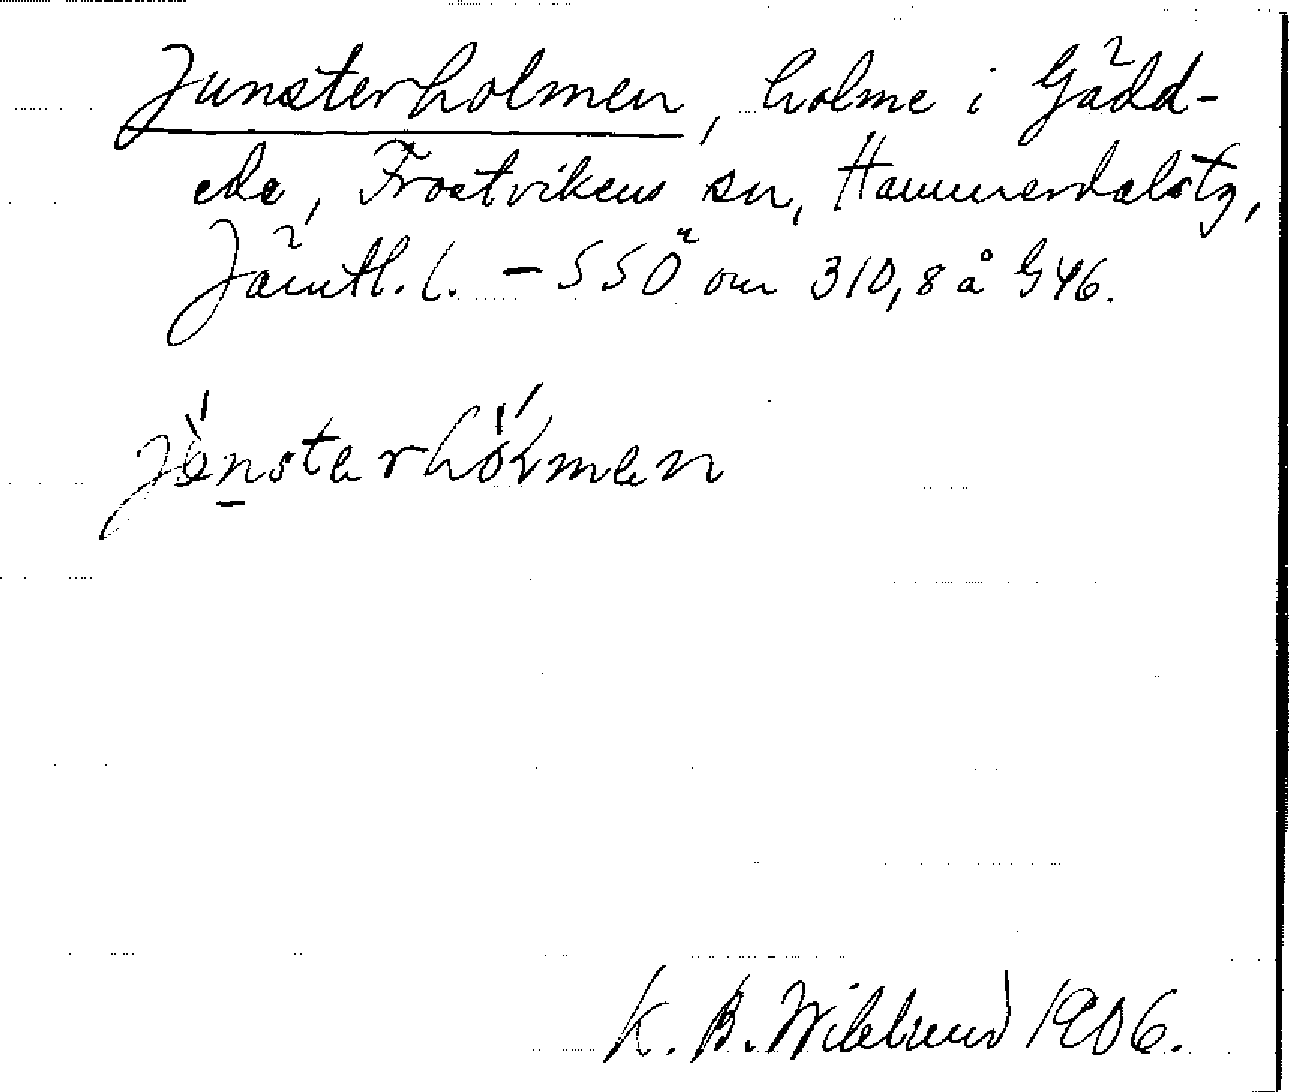 Junsterholmen, holme i Gädd-
ede, Frostvikens sn, Hammerdalstg,
Jämtl. l. – SSÖ om 310,8 å G46.
jönsterhölmen
K. B. Wiklund 1906.